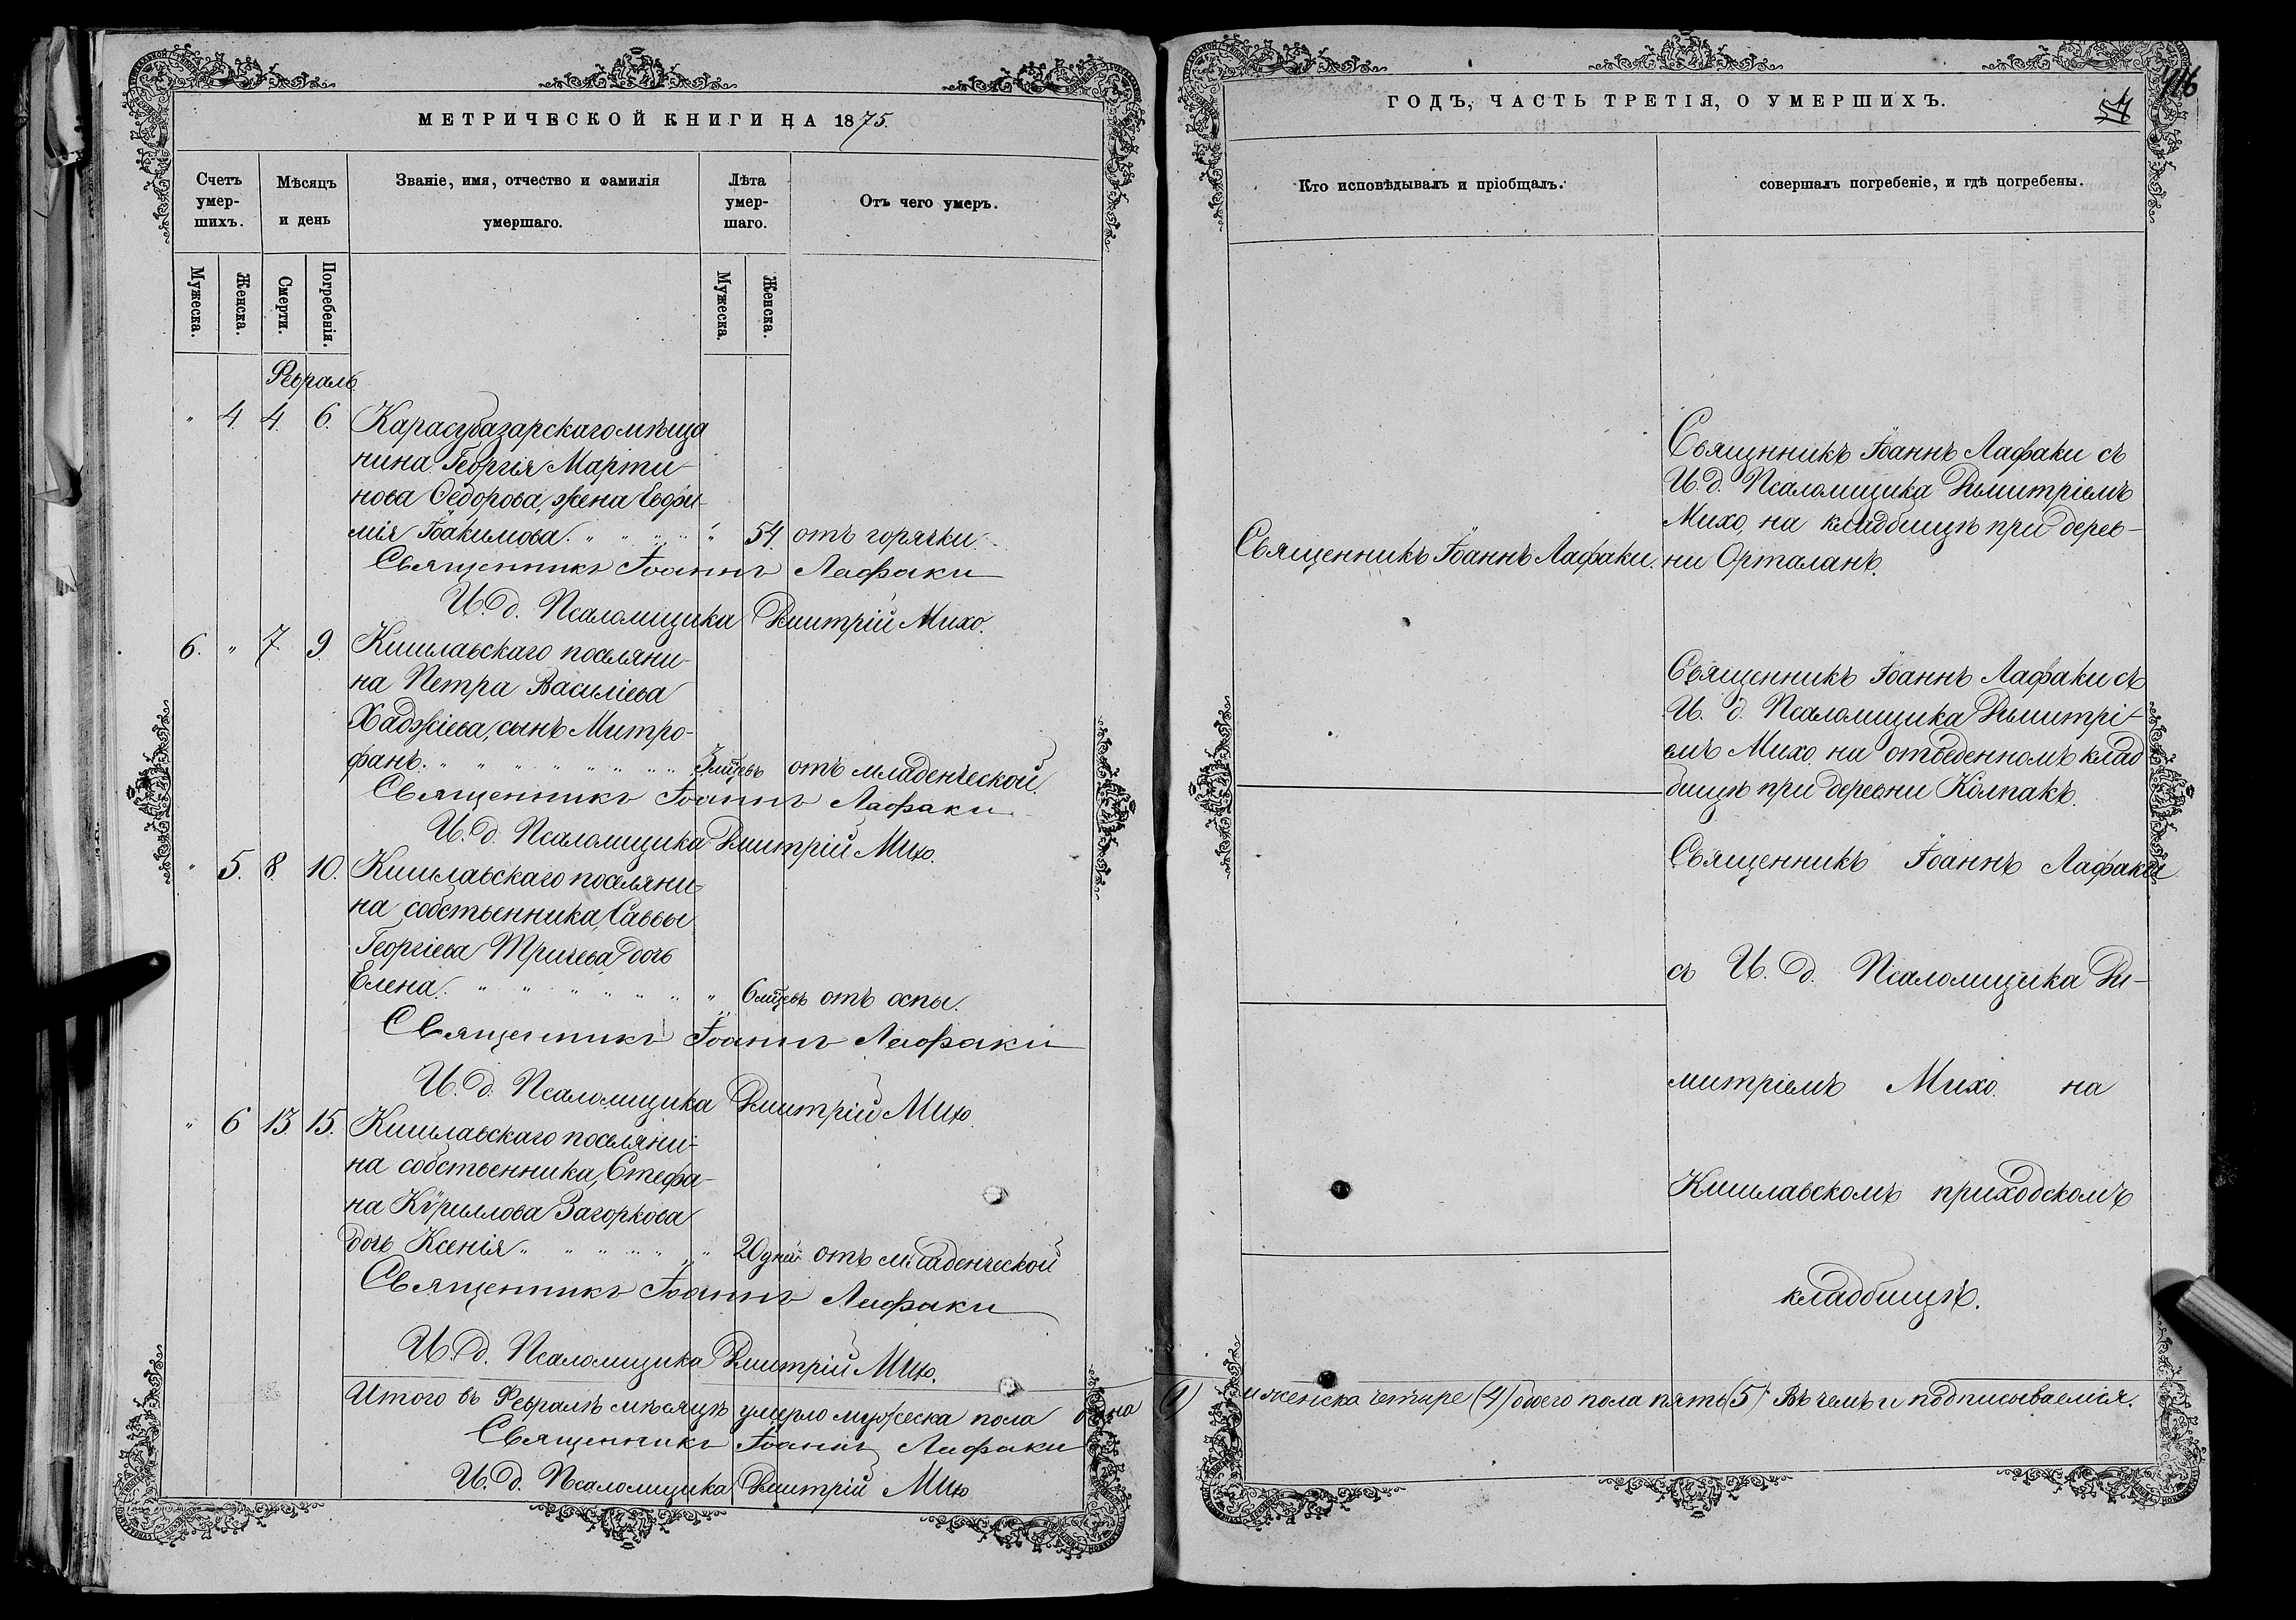 МЕТРИЧЕСКОЙ КНИГИ НА 1875.
Счетъ умер-шихъ.
Мѣсяцъ и день
Званіе, имя, отчество и фамилія умершаго.
Лѣта умер-шаго.
Отъ чего умеръ.
Мужеска.
Женска.
Смерти.
Погребенія.
Мужеска.
Женска.
Февраль
" 4 4. 6. Карасубазарскаго мѣща
нина Георгія Марти-
нова Ѳедорова, жена Евфи-
мія Іоакимова. " " " " " 54. отъ горячки.
Священникъ Іоаннъ Лафаки
И. д. Псаломщика Димитрій Михо.
6. " 7. 9. Кишлавскаго поселяни-
на Петра Василіева
Хаджіева, сынъ Митро-
фанъ. " " " " " " " " 3 мѣцевъ отъ младенческой.
Священникъ Іоаннъ Лафаки
И. д. Псаломщика Димитрій Михо.
" 5. 8. 10. Кишлавскаго поселяни-
на собственника, Саввы
Георгіева Тричева дочь
Елена. " " " " " " " 6 мѣцевъ отъ оспы.
Священникъ Іоаннъ Лафаки
И. д. Псаломщика Димитрій Михо.
" 6 13. 15. Кишлавскаго поселяни-
на собственника, Стефа-
на Кѵриллова Загоркова
дочь Ксенія " " " " " " 20 дней отъ младенческой
Священникъ Іоаннъ Лафаки
И. д. Псаломщика Димитрій Михо.
Итого въ Февралѣ мѣсяцѣ умерло мужеска пола одна
Священникъ Іоаннъ Лафаки
И. д. Псаломщика Димитрій Михо
ГОДЪ, ЧАСТЬ ТРЕТІЯ, О УМЕРШИХЪ.
Кто исповѣдывалъ и пріобщалъ.
совершалъ погребеніе, и гдѣ погребены.
Священникъ Іоаннъ Лафаки.
Священникъ Іоаннъ Лафаки съ
И. д. Псаломщика Димитріемъ
Михо, на кладбищѣ при дерев-
ни Орталанъ.
Священникъ Іоаннъ Лафаки съ
И. д. Псаломщика Димитрі-
емъ Михо на отведенномъ клад
бищѣ при деревни Колпакъ.
Священникъ Іоаннъ Лафаки
съ И. д. Псаломщика Ди-
митріемъ Михо на
Кишлавскомъ приходскомъ
кладбищѣ.
(1) и женска четыре (4) обоего пола пять (5) Въ чемъ и подписываемся.